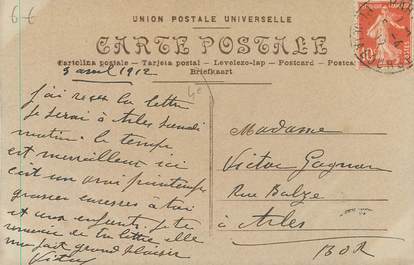 6 €
UNION POSTALE UNIVERSELLE
CARTE POSTALE
Cartolina postale — Tarjeta postal — Levelezo-lap — Postcard — Postca
Briefkaart
3 avril 1912
J'ai reçu la lettre
Je serai à Arles samedi
matin. le temps
est merveilleux ici
c'est un vrai printemps
grosses caresses à toi
et aux enfants. Je te
remercie de ta lettre elle
m'a fait grand plaisir
Victor
Madame
Victor Gagnon
Rue Balze
à Arles
B D R
10